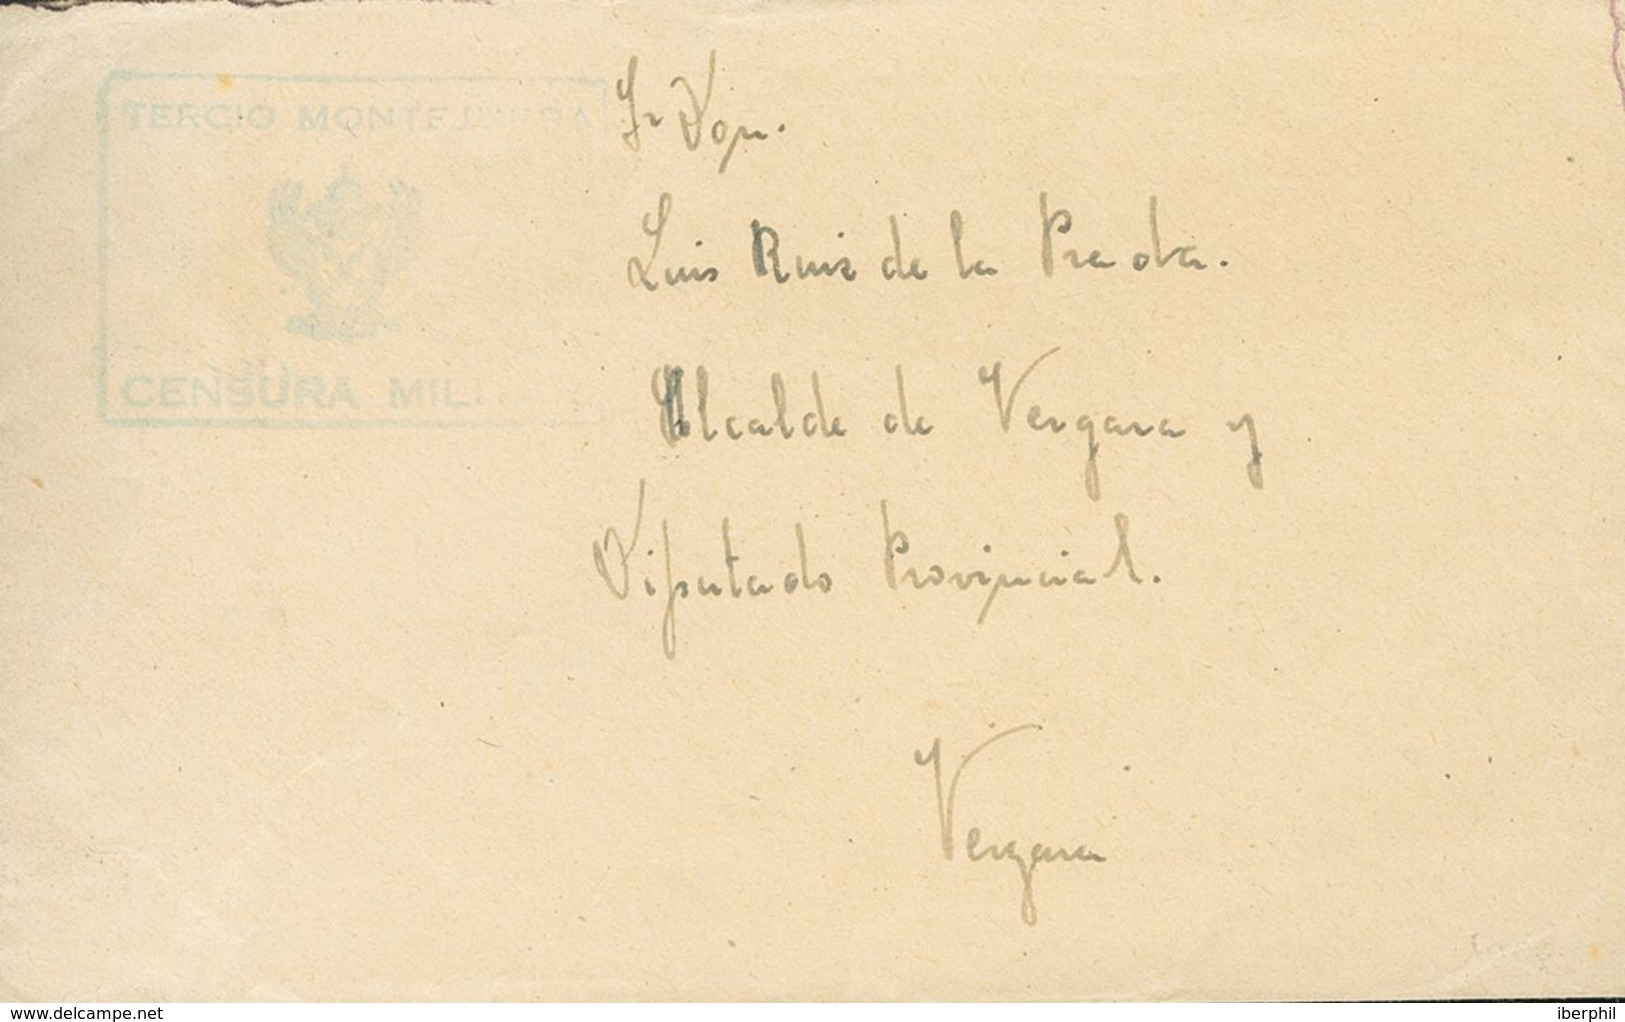 TERCIO MONTEJURRA
CENSURA MILITAR
Sr Don.
Luis Ruiz de la Prada.
Alcalde de Vergara y
Diputado Provincial.
Vergara
www.delcampe.net
iberphil